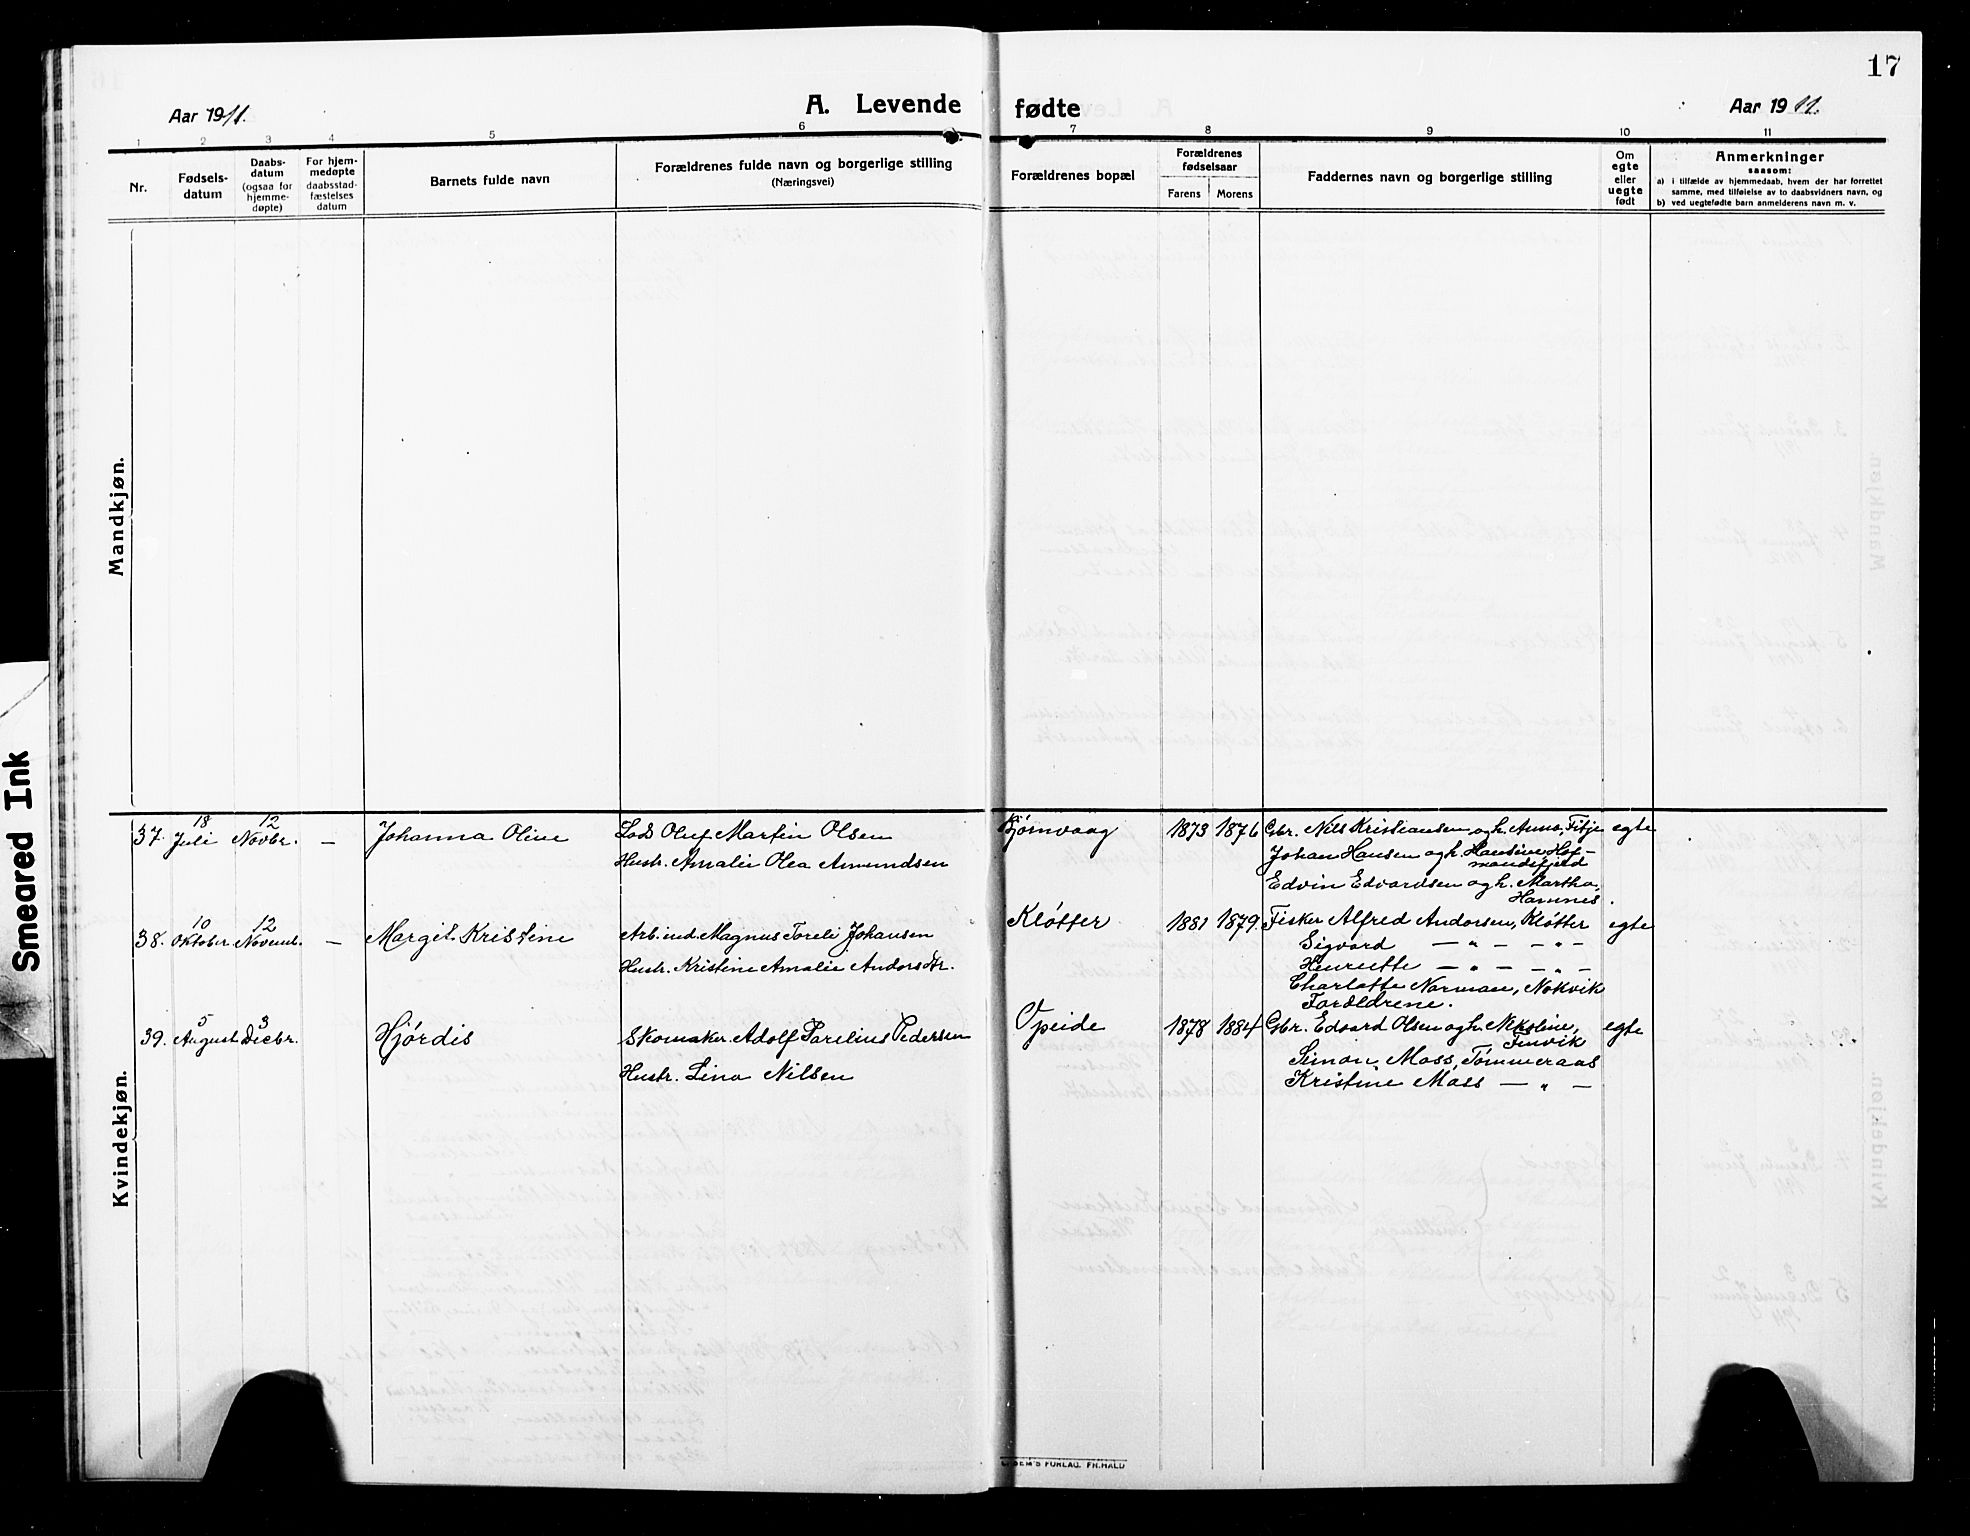 17
Aar 1911.
A. Levende
fødte
Aar 1911.
1 2 3 4 5 6 7 8 9 10 11
Nr.
Fødsels-
datum
Daabs-
datum
(ogsaa for
hjemme-
døpte)
For hjem-
medøpte
daabsstad-
fæstelses
datum
Barnets fulde navn
Forældrenes fulde navn og borgerlige stilling
(Næringsvei)
Forældrenes bopæl
Forældrenes
fødselsaar
Farens Morens
Faddernes navn og borgerlige stilling
Om
egte
eller
uegte
født
Anmerkninger
saasom:
a) i tilfælde av hjemmedaab, hvem der har forrettet
samme, med tilføielse av to daabsvidners navn, og
b) ved uegtefødte barn anmelderens navn m. v.
Mandkjøn.
Smeared Ink
Kvindekjøn.
18 12
37. Juli Novbr. — Johanna Oline Lods Oluf Martin Olsen Bjørnvaag 1873 1876 Gbr. Nils Kristiansen og h. Anna, Fitje egte
Hustr. Amalie Olea Amundsen Johan Hansen og h. Hansine Hof-
mandsfjeld
Edvin Edvardsen og h. Martha,
Hamnes.
10 12
38. Oktober Novemb. — Margit Kristine Arb. ind. Magnus Toreli Johansen Kløtter 1881 1879. Fisker Alfred Andorsen, Kløtter egte
Sigvard — " — — " —
Hustr. Kristine Amalie Andorsdtr. Henriette — " — — " —
Charlotte Norman, Nokvik
Forældrene.
5 3
39. August Decbr. Hjørdis Skomaker Adolf Parelius Pedersen Opeide 1878 1884 Gbr. Edvard Olsen og h. Nikoline, egte
Finvik
Hustr. Lina Nilsen Simon Moss, Tømmeraas
Kristine Moss — " —
FORLAG. FR. HALD